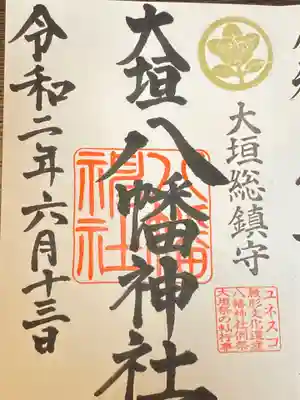 大垣総鎮守
ユネスコ
無形文化遺産
八幡神社例祭
大垣祭の軕行事
大垣八幡神社
八幡
神社
令和二年六月十三日